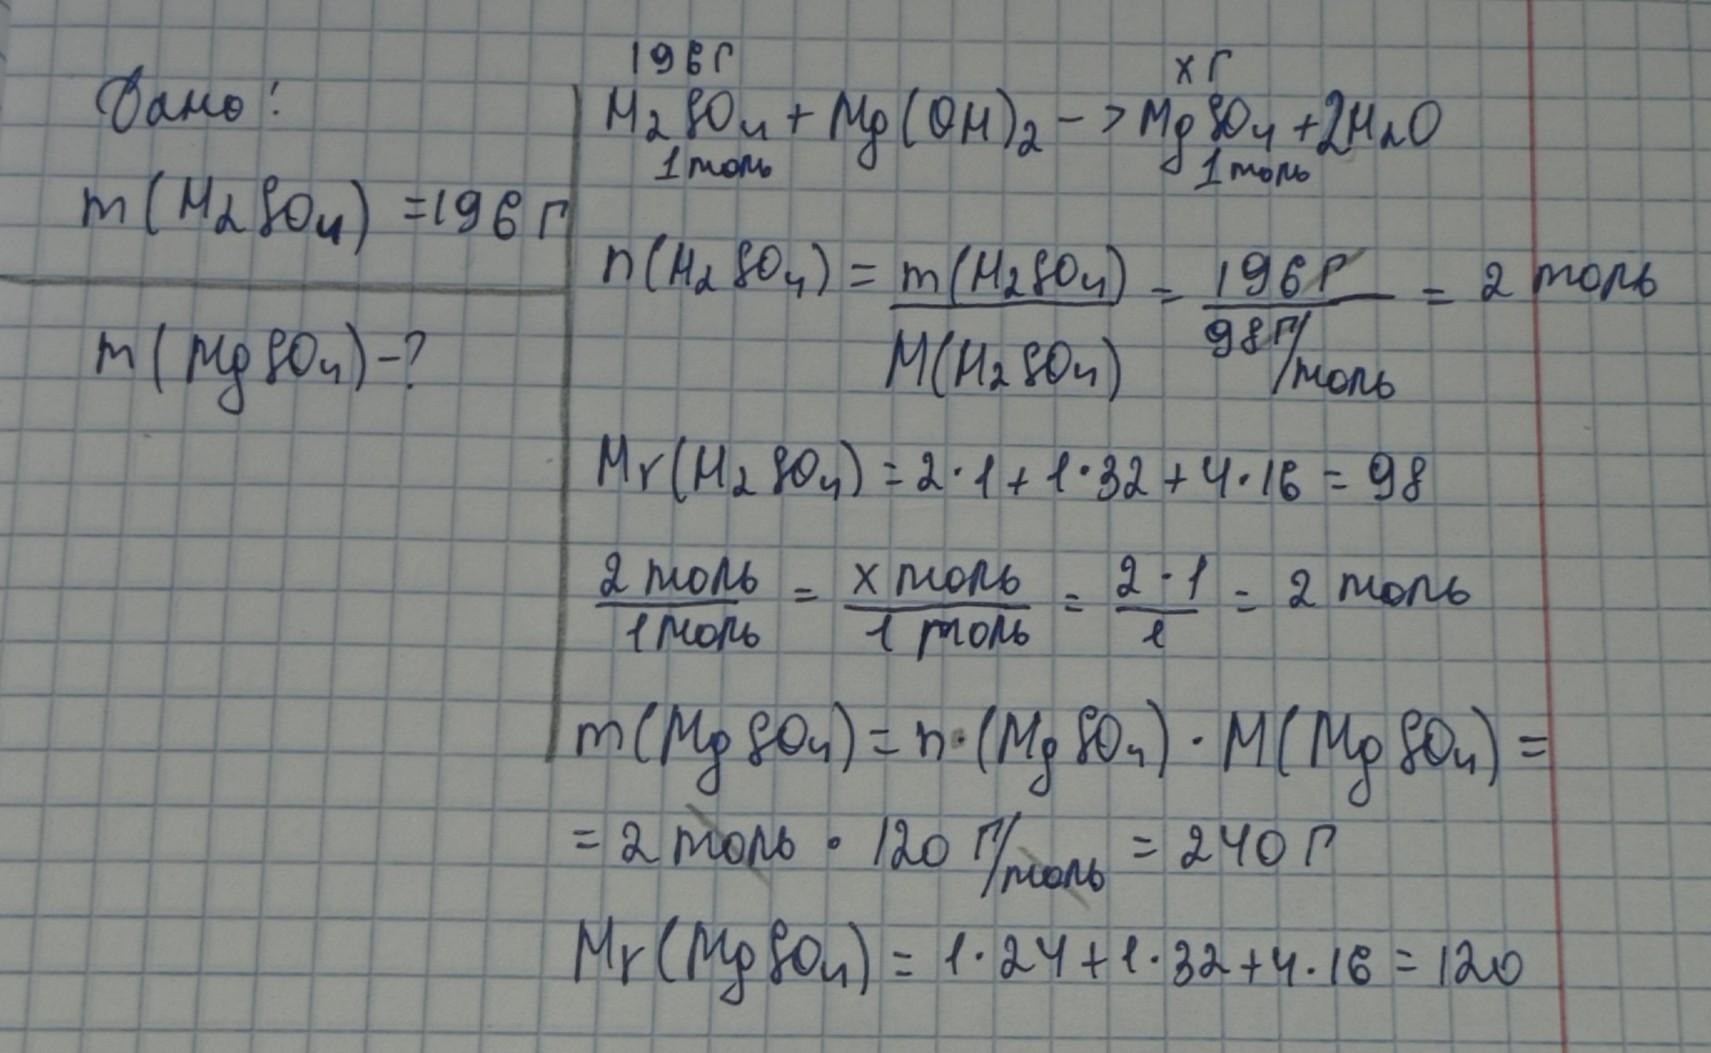 Дано:
m(H₂SO₄) = 196 г
m(MgSO₄) - ?
196 г x г
H₂SO₄ + Mg(OH)₂ -> MgSO₄ + 2H₂O
1 моль 1 моль
n(H₂SO₄) = m(H₂SO₄) / M(H₂SO₄) = 196 г / 98 г/моль = 2 моль
Mr(H₂SO₄) = 2·1 + 1·32 + 4·16 = 98
2 моль / 1 моль = x моль / 1 моль = 2·1 / 1 = 2 моль
m(MgSO₄) = n·(MgSO₄) · M(MgSO₄) =
= 2 моль · 120 г/моль = 240 г
Mr(MgSO₄) = 1·24 + 1·32 + 4·16 = 120